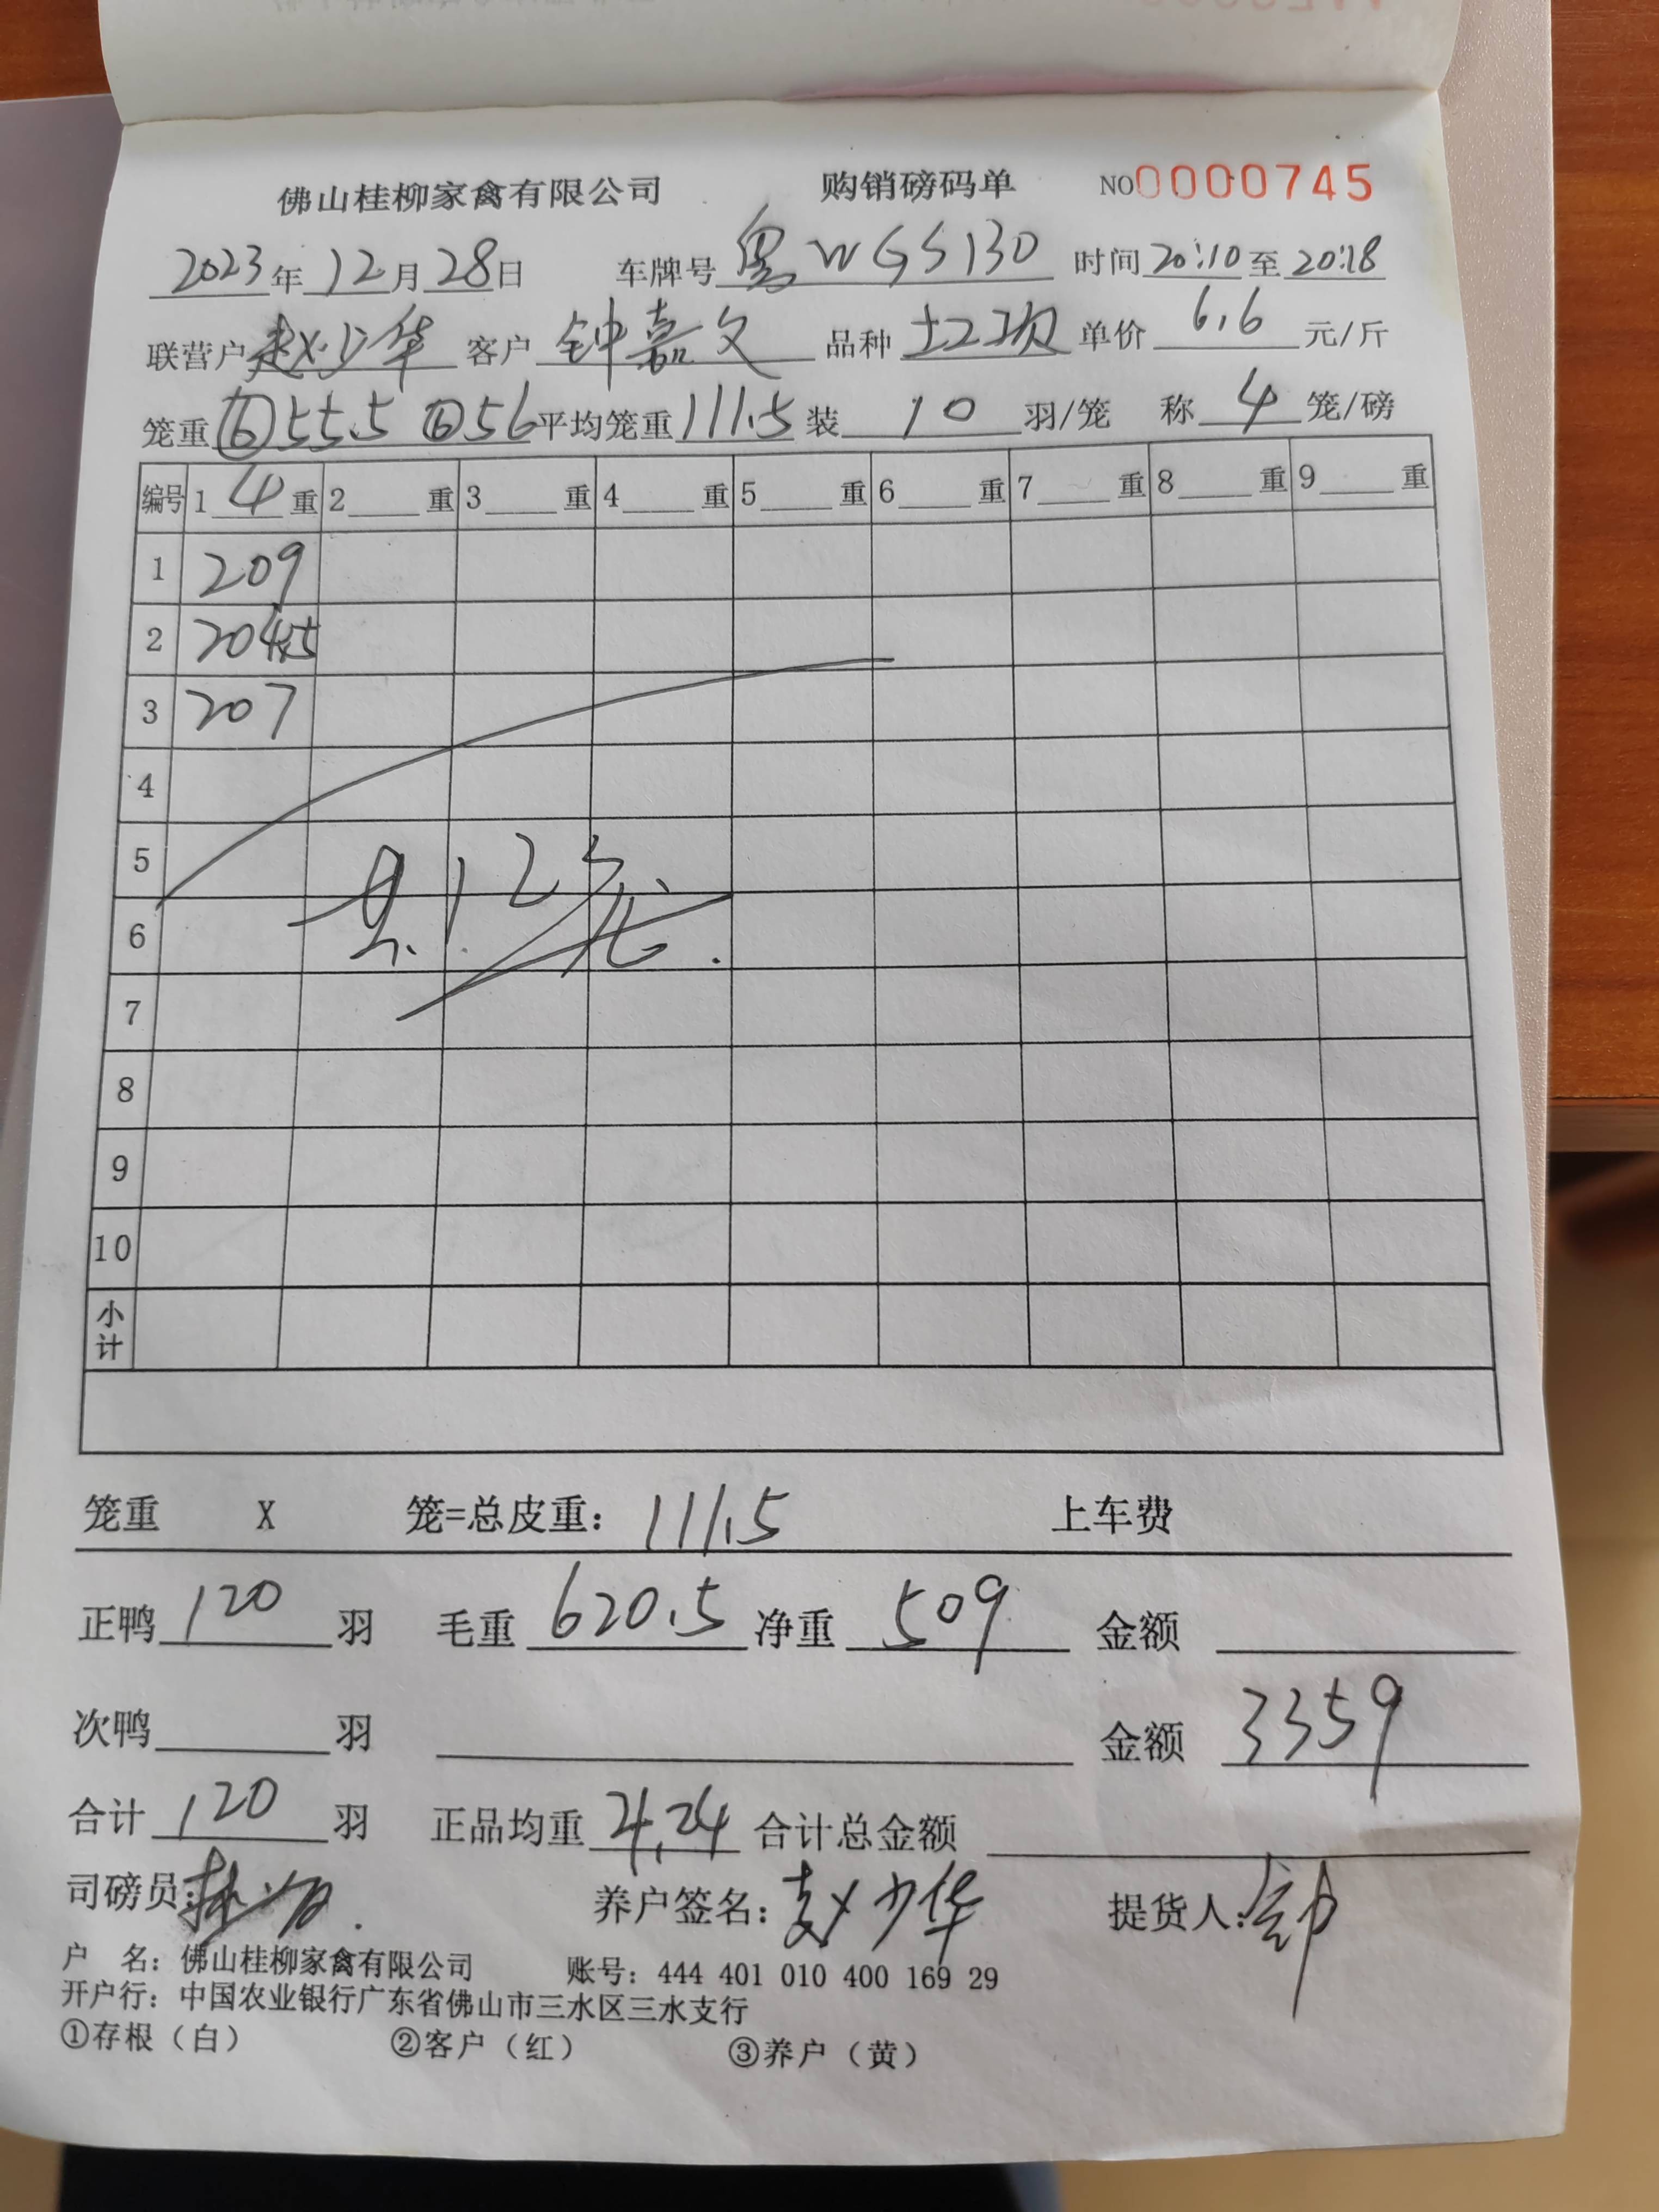 佛山桂柳家禽有限公司 购销磅码单 NO0000745
2023年12月28日 车牌号粤WGS130 时间20:10至20:18
联营户赵少华 客户钟嘉文 品种土2次 单价6.6元/斤
笼重⑥55.5 ⑥56平均笼重111.5装10羽/笼 称4笼/磅
编号 1 4 重 2 重 3 重 4 重 5 重 6 重 7 重 8 重 9 重
1 209
2 204.5
3 207
4
5
共12笼.
6
7
8
9
10
小计
笼重 X 笼=总皮重: 111.5 上车费
正鸭120羽 毛重620.5净重509 金额
次鸭 羽 金额3359
合计120羽 正品均重4.24合计总金额
司磅员: 养户签名:赵少华 提货人:
户 名: 佛山桂柳家禽有限公司 账号: 444 401 010 400 169 29
开户行: 中国农业银行广东省佛山市三水区三水支行
①存根(白) ②客户(红) ③养户(黄)